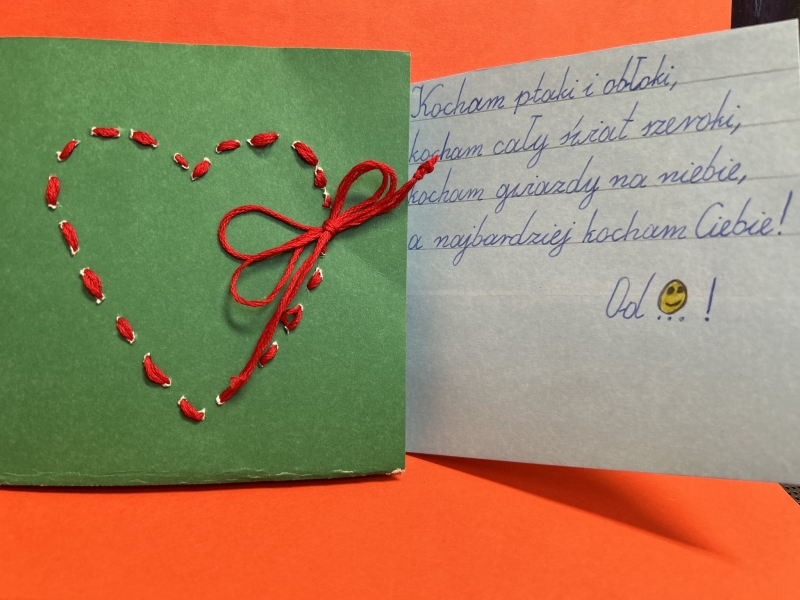 Kocham ptaki i obłoki,
kocham cały świat szeroki,
kocham gwiazdy na niebie,
a najbardziej kocham Ciebie!
Od ... !